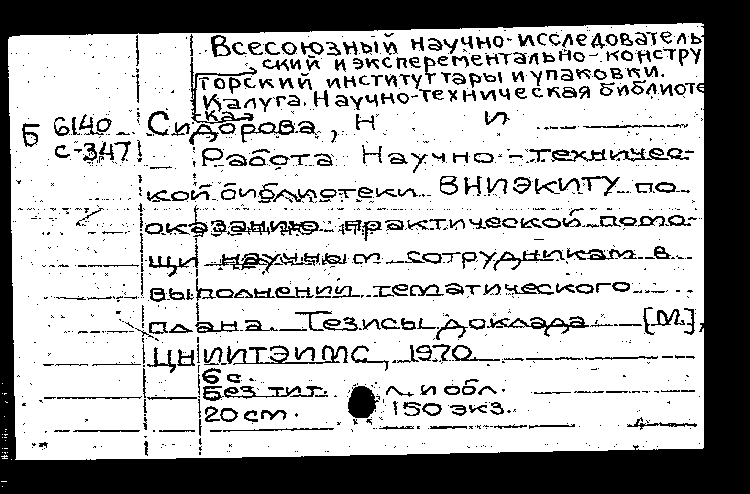 Всесоюзный научно-исследователь-
ский и эксперементально-констру
торский институт тары и упаковки.
Калуга. Научно-техническая библиоте
ка
Б 6140 Сидорова, Н И
с-347
Работа Научно-техничес-
кой библиотеки ВНИЭКИТУ по
оказанию практической помо-
щи научным сотрудникам в
выполнении тематического
плана. Тезисы доклада [М.],
ЦНИИТЭИМС, 1970
6 с.
Без тит. л. и обл.
20 см. 150 экз.